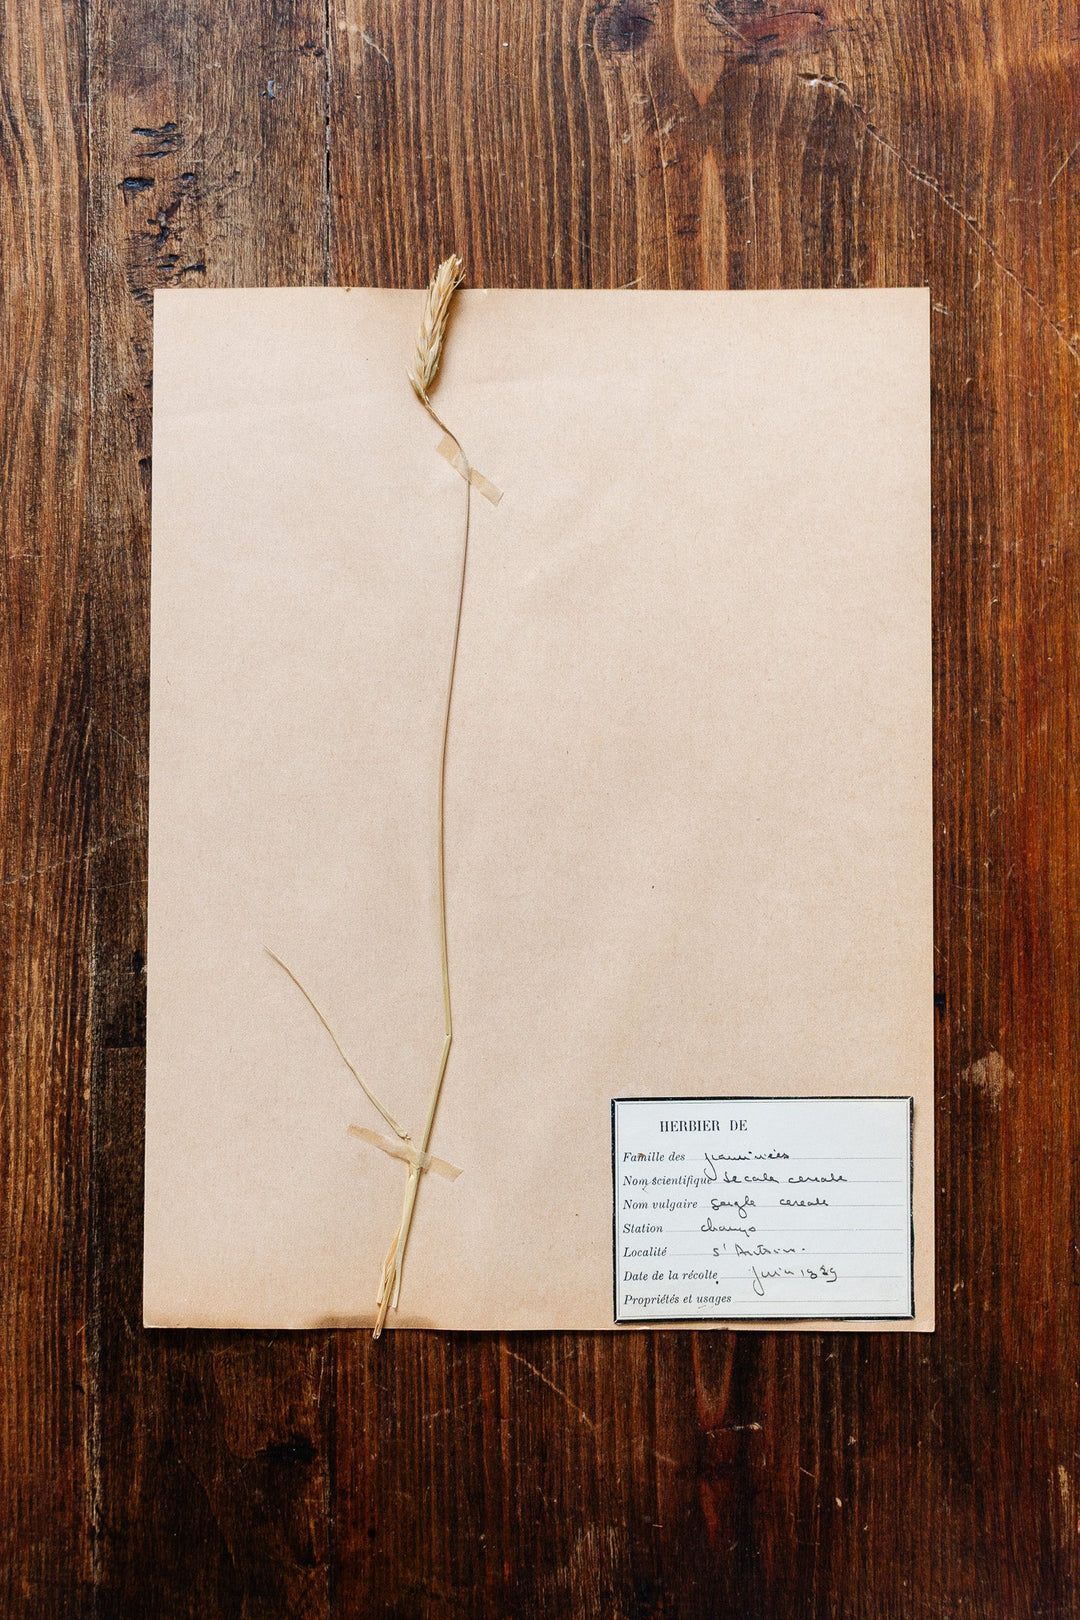 HERBIER DE
Famille des graminées
Nom scientifique Secale cereale
Nom vulgaire Seigle cereale
Station champs
Localité St Antoine.
Date de la récolte juin 1939
Propriétés et usages